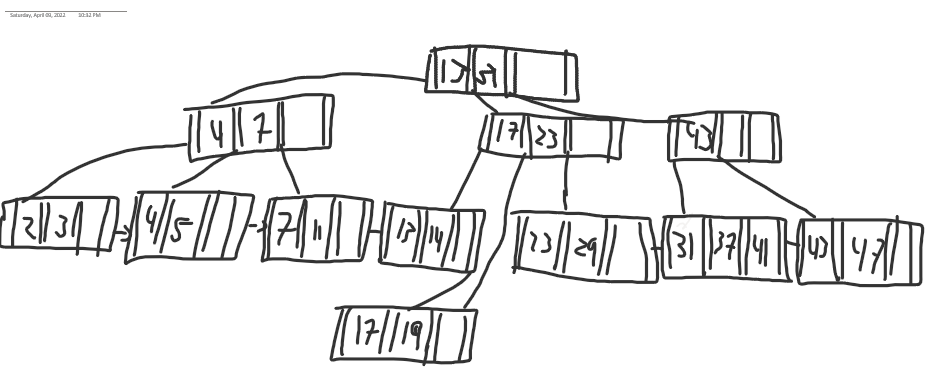 Saturday, April 09, 2022 10:32 PM
13
4 7
17 23
43
2 3
4 5
7 11
13 14
23 29
31 37 41
43 47
17 19